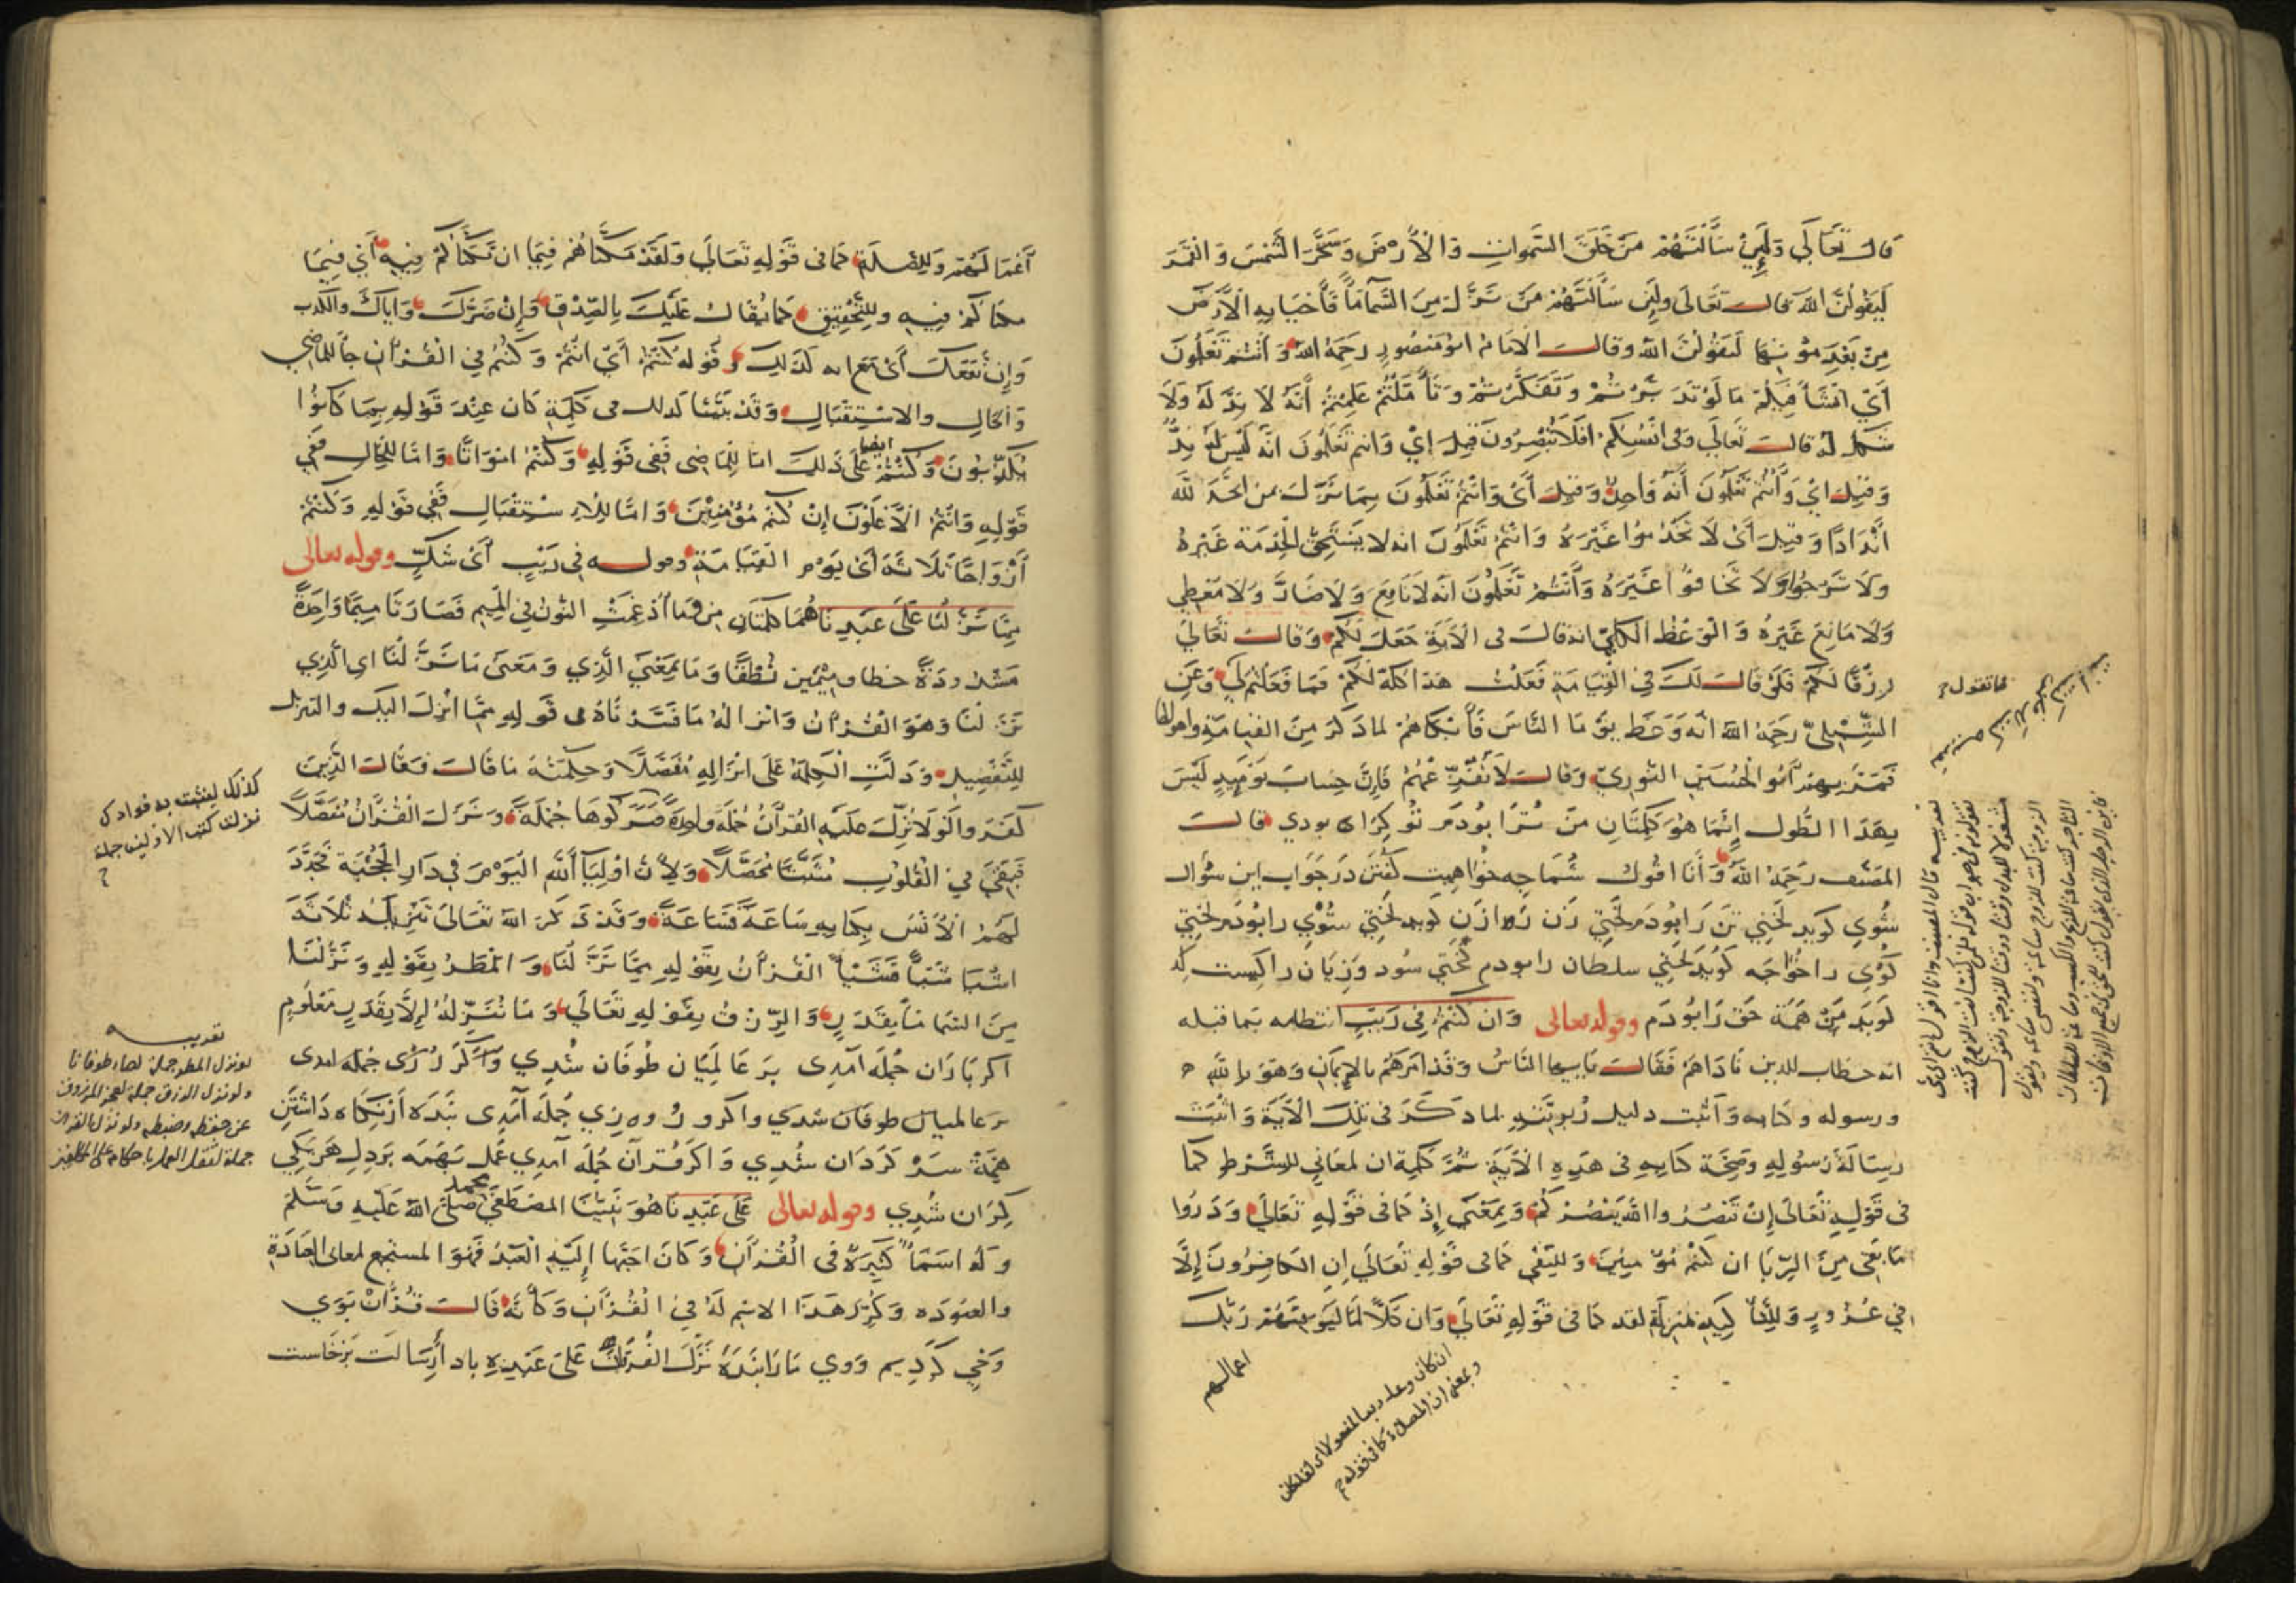 قال تعالى ولئن سألتهم من خلق السموات والأرض وسخر الشمس والقمر
ليقولن الله قال تعالى ولئن سألتهم من نزل من السماء ماء فأحيا به الأرض
من بعد موتها ليقولن الله وقال الامام ابو منصور رحمه الله وأنتم تعلمون
أي انشأ قبلكم ما لو تدبرتم وتفكرتم وتأملتم علمتم أنه لا ند له ولا
شكل له قال تعالى وفى انفسكم افلا تبصرون قيل اي وانتم تعلمون انه ليس له ند
وقيل اي وأنتم تعلمون أنه واحد وقيل أى وانتم تعلمون بما نزل من الحد لله
أندادا وقيل أى لا تخدموا غيره وانتم تعلمون انه لا يستحق الخدمة غيره
ولا ترجوا ولا تخافوا غيره وأنتم تعلمون انه لا نافع ولا ضار ولا معطي
ولا مانع غيره والوعظ الكلي انه قال فى الآية جعل لكم وقال تعالى
رزقا لكم فلو قال لك في القيامة فعلت هذا كله لكم فما فعلتم لي وعن
الشبلي رحمه الله انه وعظ يوما الناس فأبكاهم لما ذكر من القيامة واهوالها
فمر بهم أبو الحسين النوري وقال لا تفزعهم فإن حساب يومئذ ليس
بهذا الطول إنما هو كلمتان من ترا بودم تو كرا بودي قال
المصنف رحمه الله وأنا اقول شما چه خواهيت گفتن در جواب اين سؤال
شوي گويد لختي تن را بودم لختي زن را و زن گويد لختي شوي را بودم لختي
كوى را خواجه گويد لختي سلطان را بودم لختي سود وزيان را كيست كه
گويد من همه حق را بودم وقوله تعالى وان كنتم في ريب انتظامه بما قبله
انه خطاب للذين ناداهم فقال يا ايها الناس وقد امرهم بالإيمان وهو بالله
ورسوله وكتابه وأثبت دليل ربوبيته بما ذكر فى تلك الآية واثبت
رسالة رسوله وصحة كتابه فى هذه الآية ثم كلمة ان لمعاني للشرط كما
فى قوله تعالى إن تنصروا الله ينصركم وبمعنى إذ كما فى قوله تعالى وذروا
ما بقي من الربا ان كنتم مؤمنين وللنفي كما فى قوله تعالى إن الكافرون إلا
في غرور وللتأكيد بمنزلة لقد كما فى قوله تعالى وان كلا لما ليوفينهم ربك
اعمالهم
فما تقول
أعمالهم وللصلة كما فى قوله تعالى ولقد مكناهم فيما ان مكناكم فيه أي فيما
مكناكم فيه وللتحقيق كما يقال عليك بالصدق وإن ضرك واياك والكذب
وإن نفعك أى مع انه كذلك وقوله كنتم أي انتم وكنتم في القرآن جاء للماضي
والحال والاستقبال وقد بينا كذلك فى كلمة كان عند قوله بما كانوا
يكذبون وكنتم ايضا على ذلك اما للماضى ففى قوله وكنتم امواتا واما للحال ففي
قوله وانتم الأعلون إن كنتم مؤمنين واما للاستقبال ففي قوله وكنتم
أزواجا ثلاثة أى يوم القيامة وقوله في ريب أى شك وقوله تعالى
مما نزلنا على عبدنا هما كلمتان من وما أدغمت النون في الميم فصارتا ميما واحدة
مشددة خطا وميمين نطقا وما بمعنى الذي ومعنى ما نزلنا اي الذي
نزلنا وهو القرآن وانزاله ما فسرناه فى قوله بما انزل اليك والتنزيل
للتفصيل ودلت الكلمة على انزاله مفصلا وحكمته ما قال وقال الذين
كفروا لولا نزل عليه القرآن جملة واحدة ونزل القرآن مفصلا
فبقي في القلوب مثبتا محصلا ولأن اولياء الله اليوم في دار الحجبة تجدد
لهم الأنس بكتابه ساعة فساعة وقد ذكر الله تعالى تنزيله ثلاثة
اشيا شيئا فشيئا القرآن بقوله مما نزلنا والمطر بقوله ونزلنا
من السماء ماء بقدر والرزق بقوله تعالى وما ننزله إلا بقدر معلوم
اكر باران جمله آمدى بر عالميان طوفان شدي واكر رزق جمله امدى
بر عالميان طوفان شدي واكر روزي جمله آمدى بنده از نگاه داشتن
همه سر گردان شدي واكر قرآن جمله آمدي عمل بهمه بر دل هر يكي
گران شدي وقوله تعالى على عبدنا هو نبينا المصطفى محمد صلى الله عليه وسلم
وله اسماء كثيرة فى القرآن وكان احبها إليه العبد فهو المستجمع لمعانى العبادة
والعبودة وكرر هذا الاسم له في القرآن وكأنه قال قرآن بوى
وحي كرديم ووي ما را بنده نزل الفرقان على عبده باد رسالت برخاست
كذلك لنثبت به فؤادك
نزلت كتب الاولين جملة
تقريبه
لو نزل المطر جملة لصار طوفانا
ولو نزل الرزق جملة لعجز المرزوق
عن حفظه وضبطه ولو نزل القرآن
جملة لثقل العمل باحكامه على المكلفين